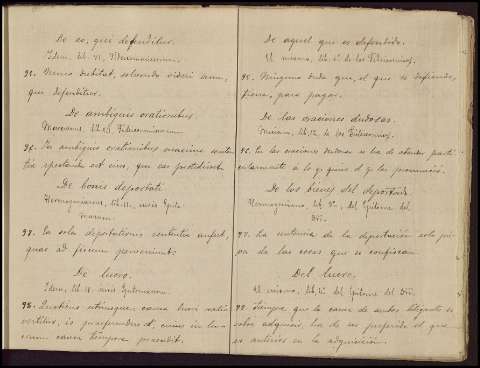 De eo, qui defenditur.
Idem, lib.
95. Nemo dubitat, solvendo videri eum,
qui defenditur.
De ambiguis orationibus
Marcianus, lib.
96. In ambiguis orationibus maxime senten
tia spectanda est eius, qui eas protulisset.
De bonis deportati
Hermogenianus, lib.
marum.
97. In sola deportationis sententia aufert,
quae ad fiscum perveniunt.
De lucro.
Idem, lib.
98. Quotiens utriusque causa lucri ratio
vertitur, is praeferendus est, cuius in lu-
crum causa tempore praecedit.
De aquel que es defendido.
El mismo, lib.
95. Ninguno duda que, el que es defendido,
tiene, para pagar.
De las oraciones dudosas.
Marciano, lib. 12 de los
96. En las oraciones dudosas se ha de atender parti
cularmente á lo q. quiso el q. las pronunció.
De los bienes del deportado
Hermogeniano, lib. del Epitome del
Dro.
97. La sentencia de la deportación solo pri
va de las cosas que se confiscan.
Del lucro.
El mismo, lib. del Epitome del Dro.
98. Siempre que la causa de ambos litigantes es
sobre adquirir, ha de ser preferido el que
es anterior en la adquisición.